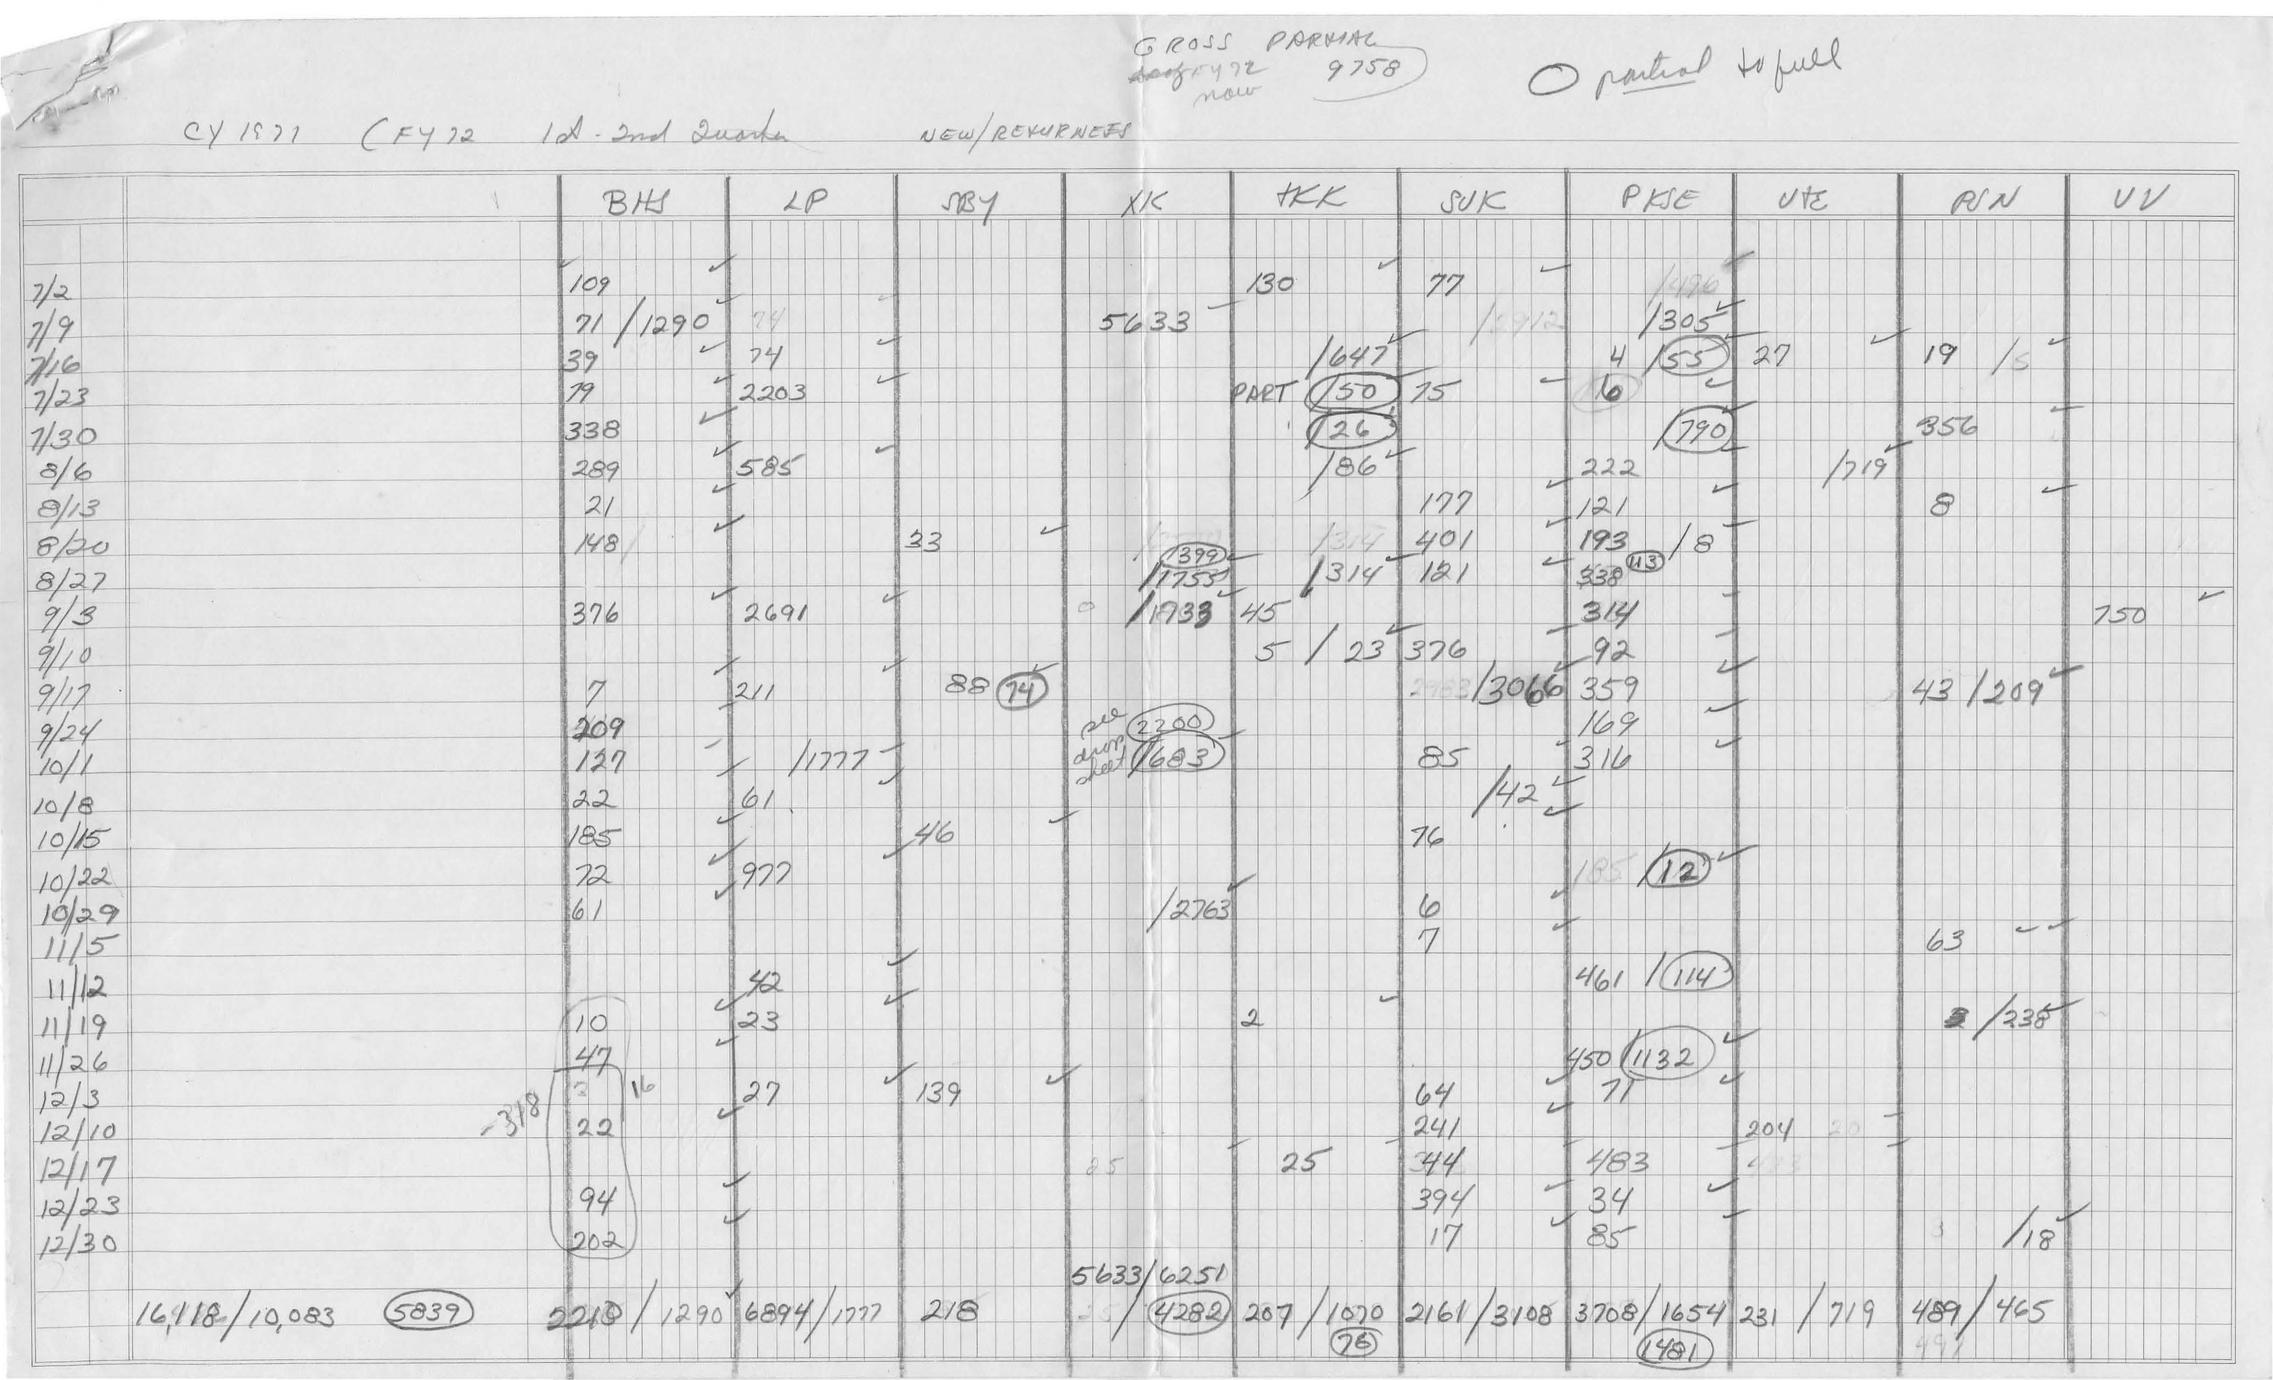 GROSS PARTIAL
FY72 9758
now
O partial to full
CY 1971 (FY72 1st - 2nd Quarter NEW/RETURNEES
BHS LP SBY XK TKK SVK PKSE UTE PSN UV
7/2 109 130 77 /496
7/9 71 /1290 74 5633 /2912 /305
7/16 39 74 /647 4 /55 27 19 /5
7/23 79 2203 PART /50 75 6
7/30 338 /26 /790 356
8/6 289 585 /86 222 /719
8/13 21 177 121 8
8/20 148 33 /314 401 193 /8
399 113
8/27 /1755 /314 121 338
9/3 376 2691 0 /1933 45 314 750
9/10 5 /23 376 92
9/17 7 211 88 74 /3066 359 43 /209
9/24 209 see 2200 169
10/1 127 /1777 drop sheet /683 85 316
10/8 22 61 /42
10/15 185 46 76
10/22 72 977 185 /12
10/29 61 /2763 6
11/5 7 63
11/12 42 461 /114
11/19 10 23 2 /238
11/26 47 450 /1132
12/3 16 27 139 64 71
12/10 -318 22 241 204 20
12/17 25 25 44 483
12/23 94 394 34
12/30 202 17 85 /18
5633/6251
16,118/10,083 5839 /1290 6894/1777 218 25 / 4282 207/1070 2161/3108 3708/1654 231 /719 489/465
76 1481 491